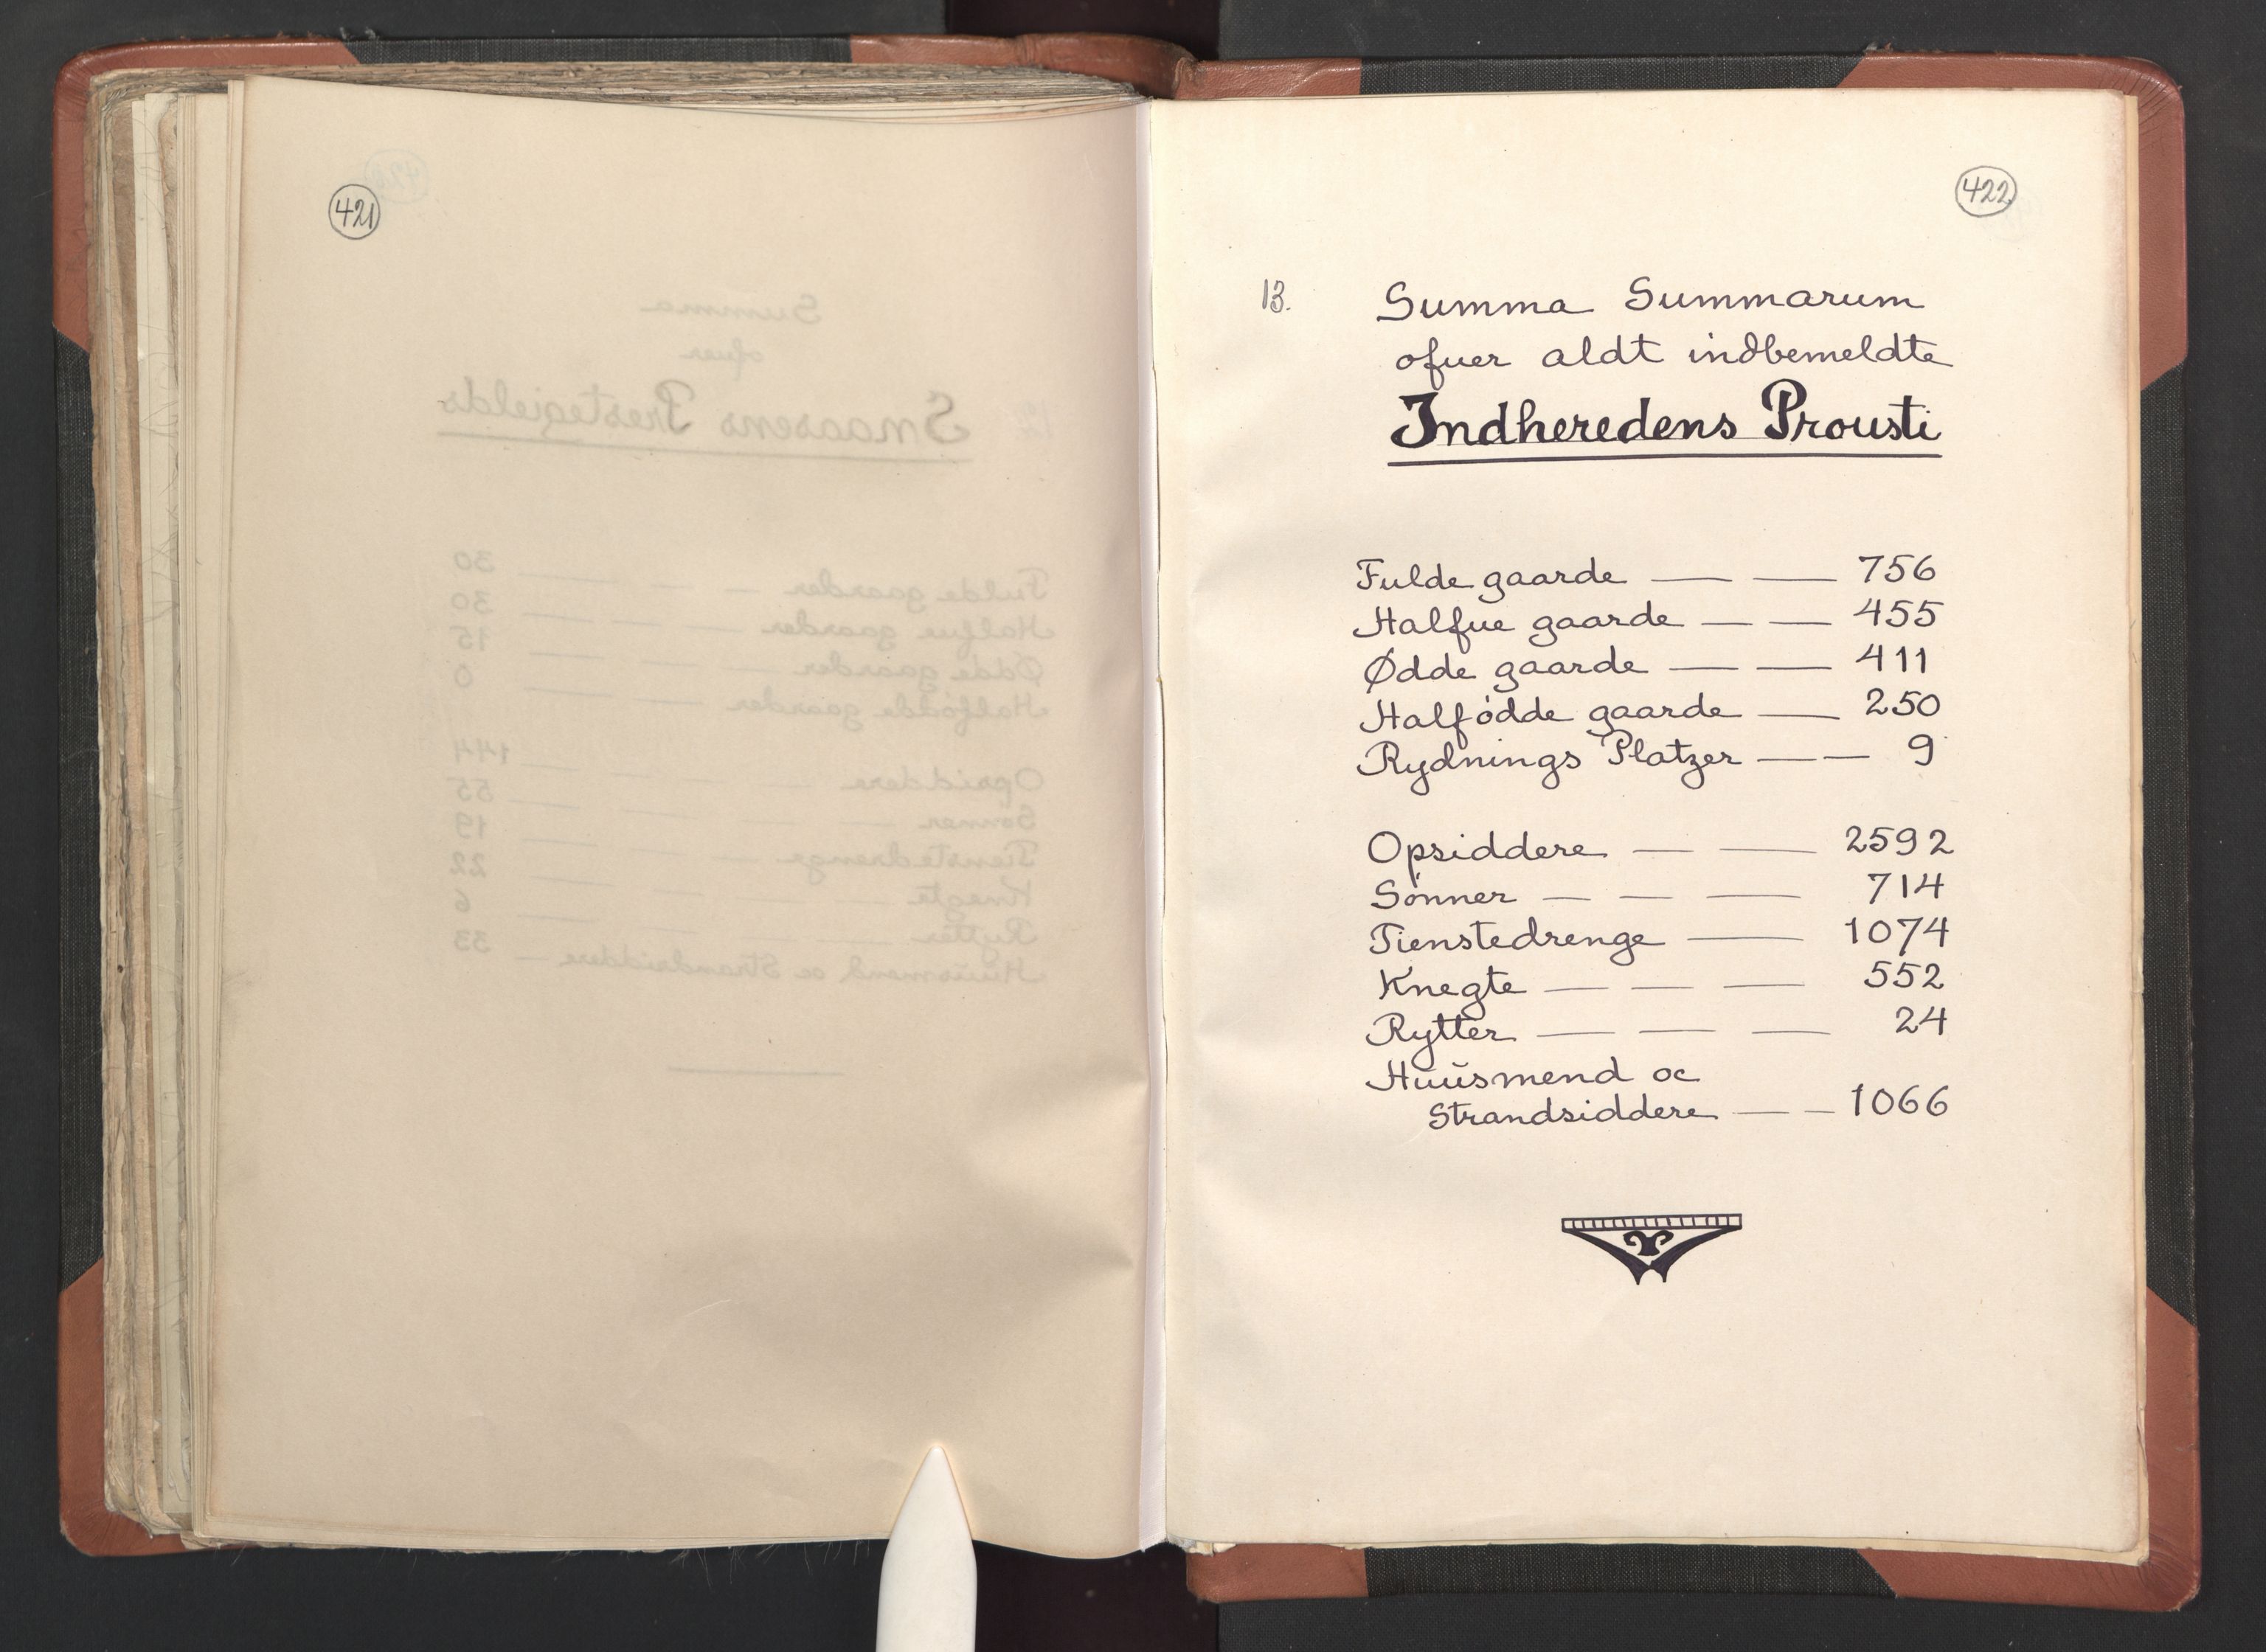 421
422
13.
Summa Summarum
ofuer aldt indbemeldte
Indheredens Prousti
Fulde gaarde — — 756
Halfue gaarde — — 455
Ødde gaarde — — 411
Halfødde gaarde — 250
Rydnings Platzer — — 9
Opsiddere — — 2592
Sønner — — — 714
Tienstedrenge — 1074
Knegte — — — 552
Rytter — — — 24
Huusmend oc
Strandsiddere — — 1066